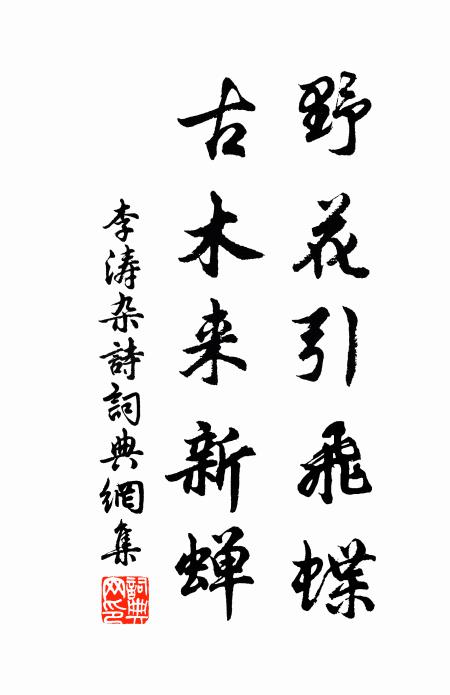 野花引飛蝶
古木来新蝉
李涛杂詩詞典網集
詞典網印